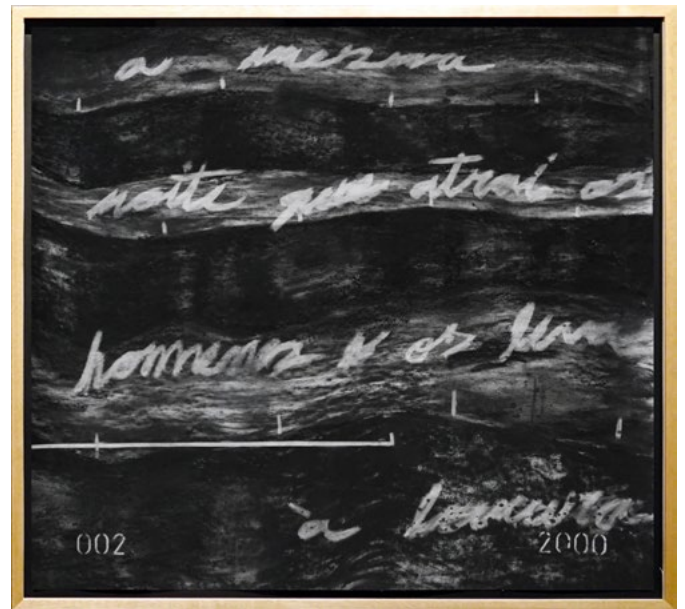 a mesma
noite que atrai os
homens e os leva
à loucura
002 2000